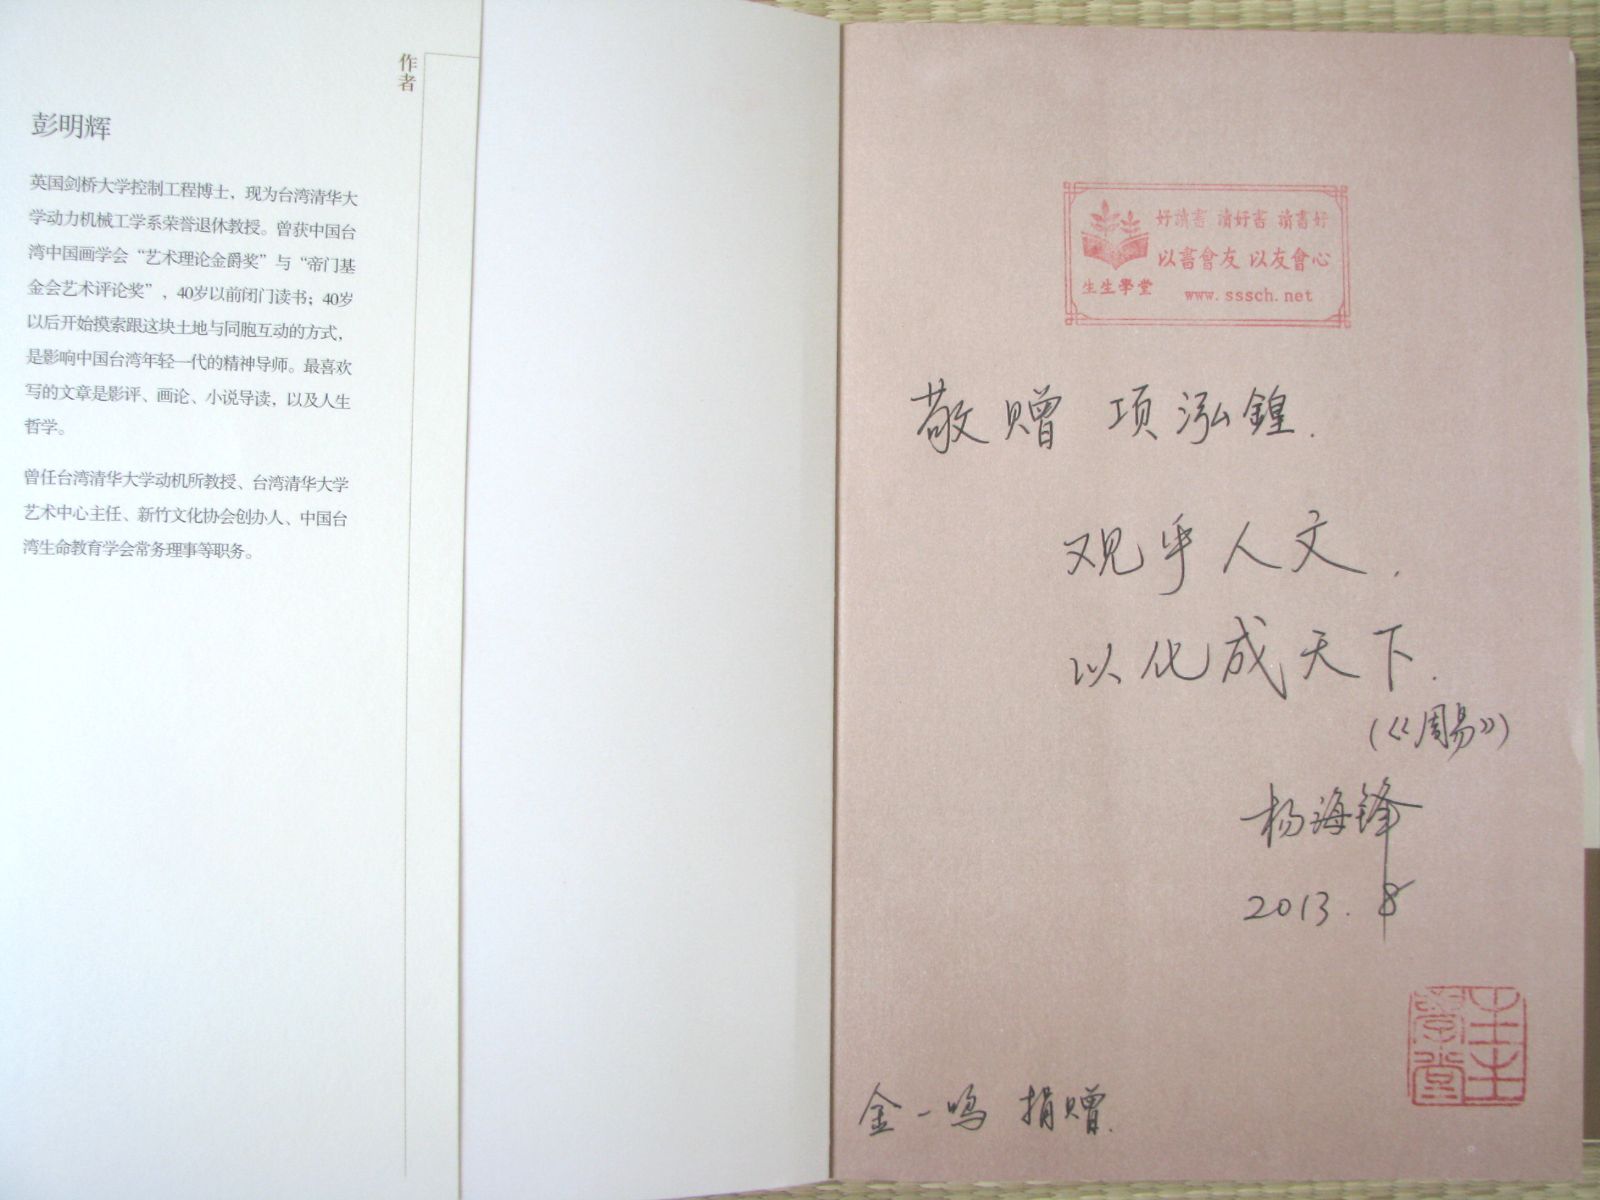 作者
彭明辉
英国剑桥大学控制工程博士，现为台湾清华大
学动力机械工学系荣誉退休教授。曾获中国台
湾中国画学会“艺术理论金爵奖”与“帝门基
金会艺术评论奖”，40岁以前闭门读书；40岁
以后开始摸索跟这块土地与同胞互动的方式，
是影响中国台湾年轻一代的精神导师。最喜欢
写的文章是影评、画论、小说导读，以及人生
哲学。
曾任台湾清华大学动机所教授、台湾清华大学
艺术中心主任、新竹文化协会创办人、中国台
湾生命教育学会常务理事等职务。
好讀書 讀好書 讀書好
以書會友 以友會心
生生學堂
www.sssch.net
敬赠 项泓鍠.
观乎人文.
以化成天下.
(《周易》)
杨海锋
2013.8
生生學堂
金一鸣 捐赠.